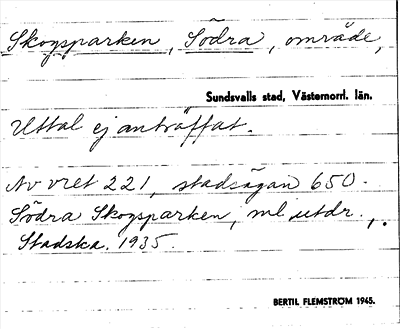 Skogsparken, Södra, område,
Sundsvalls stad, Västernorrl. län.
Uttal ej anträffat.
Av vret 221, stadsägan 650.
Södra Skogsparken, ml. utdr.,
Stadska. 1935.
BERTIL FLEMSTRÖM 1945.